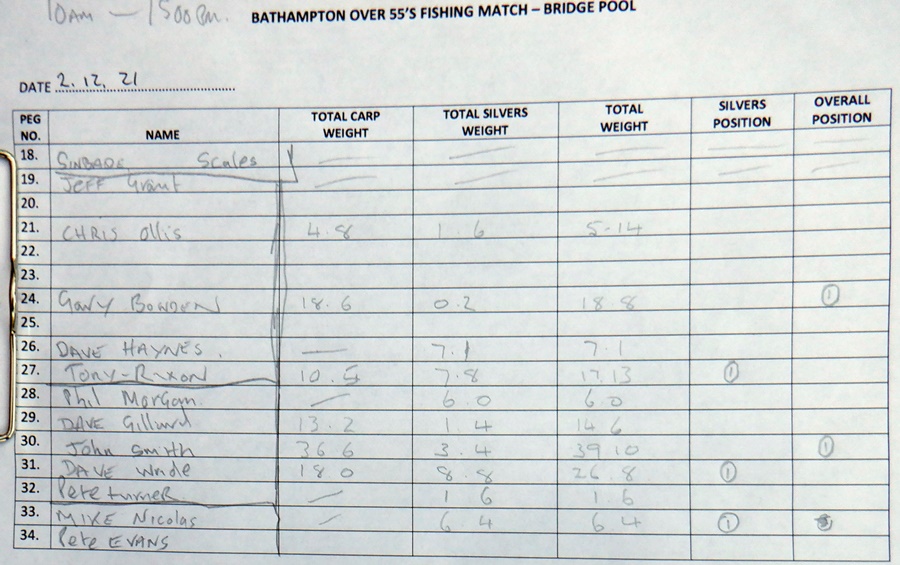 10AM — 1500 Pm.
BATHAMPTON OVER 55'S FISHING MATCH – BRIDGE POOL
DATE 2.12.21
PEG NO. NAME TOTAL CARP WEIGHT TOTAL SILVERS WEIGHT TOTAL WEIGHT SILVERS POSITION OVERALL POSITION
18. SINBADS Scales — — — — —
19. Jeff Grant — — — — —
20.
21. CHRIS Ollis 4.8 1.6 5-14
22.
23.
24. Gary BOWDEN 18.6 0.2 18.8 1
25.
26. DAVE HAYNES. — 7.1 7.1
27. TONY-RIXON 10.5 7.8 17.13 1
28. Phil Morgan — 6.0 6.0
29. DAVE Gillard 13.2 1.4 14 6
30. John Smith 36 6 3.4 39 10 1
31. DAVE Wride 18 0 8.8 26.8 1
32. Pete turner — 1 6 1.6
33. MIKE Nicolas — 6 4 6 4 1
34. Pete EVANS